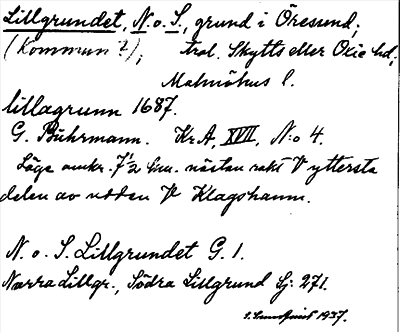 Lillgrundet, N. o. S., grund i Öresund;
(Kommun?); trol. Skytts eller Oxie hd;
Malmöhus l.
lillagrunn 1687.
G. Buhrmann. Kr.A. XVII, N:o 4.
Läge omkr. 7½ km. nästan rakt V yttersta
delen av udden V Klagshamn.
N. o. S. Lillgrundet G. 1.
Norra Lillgr., Södra Lillgrund Sj: 271.
1937.